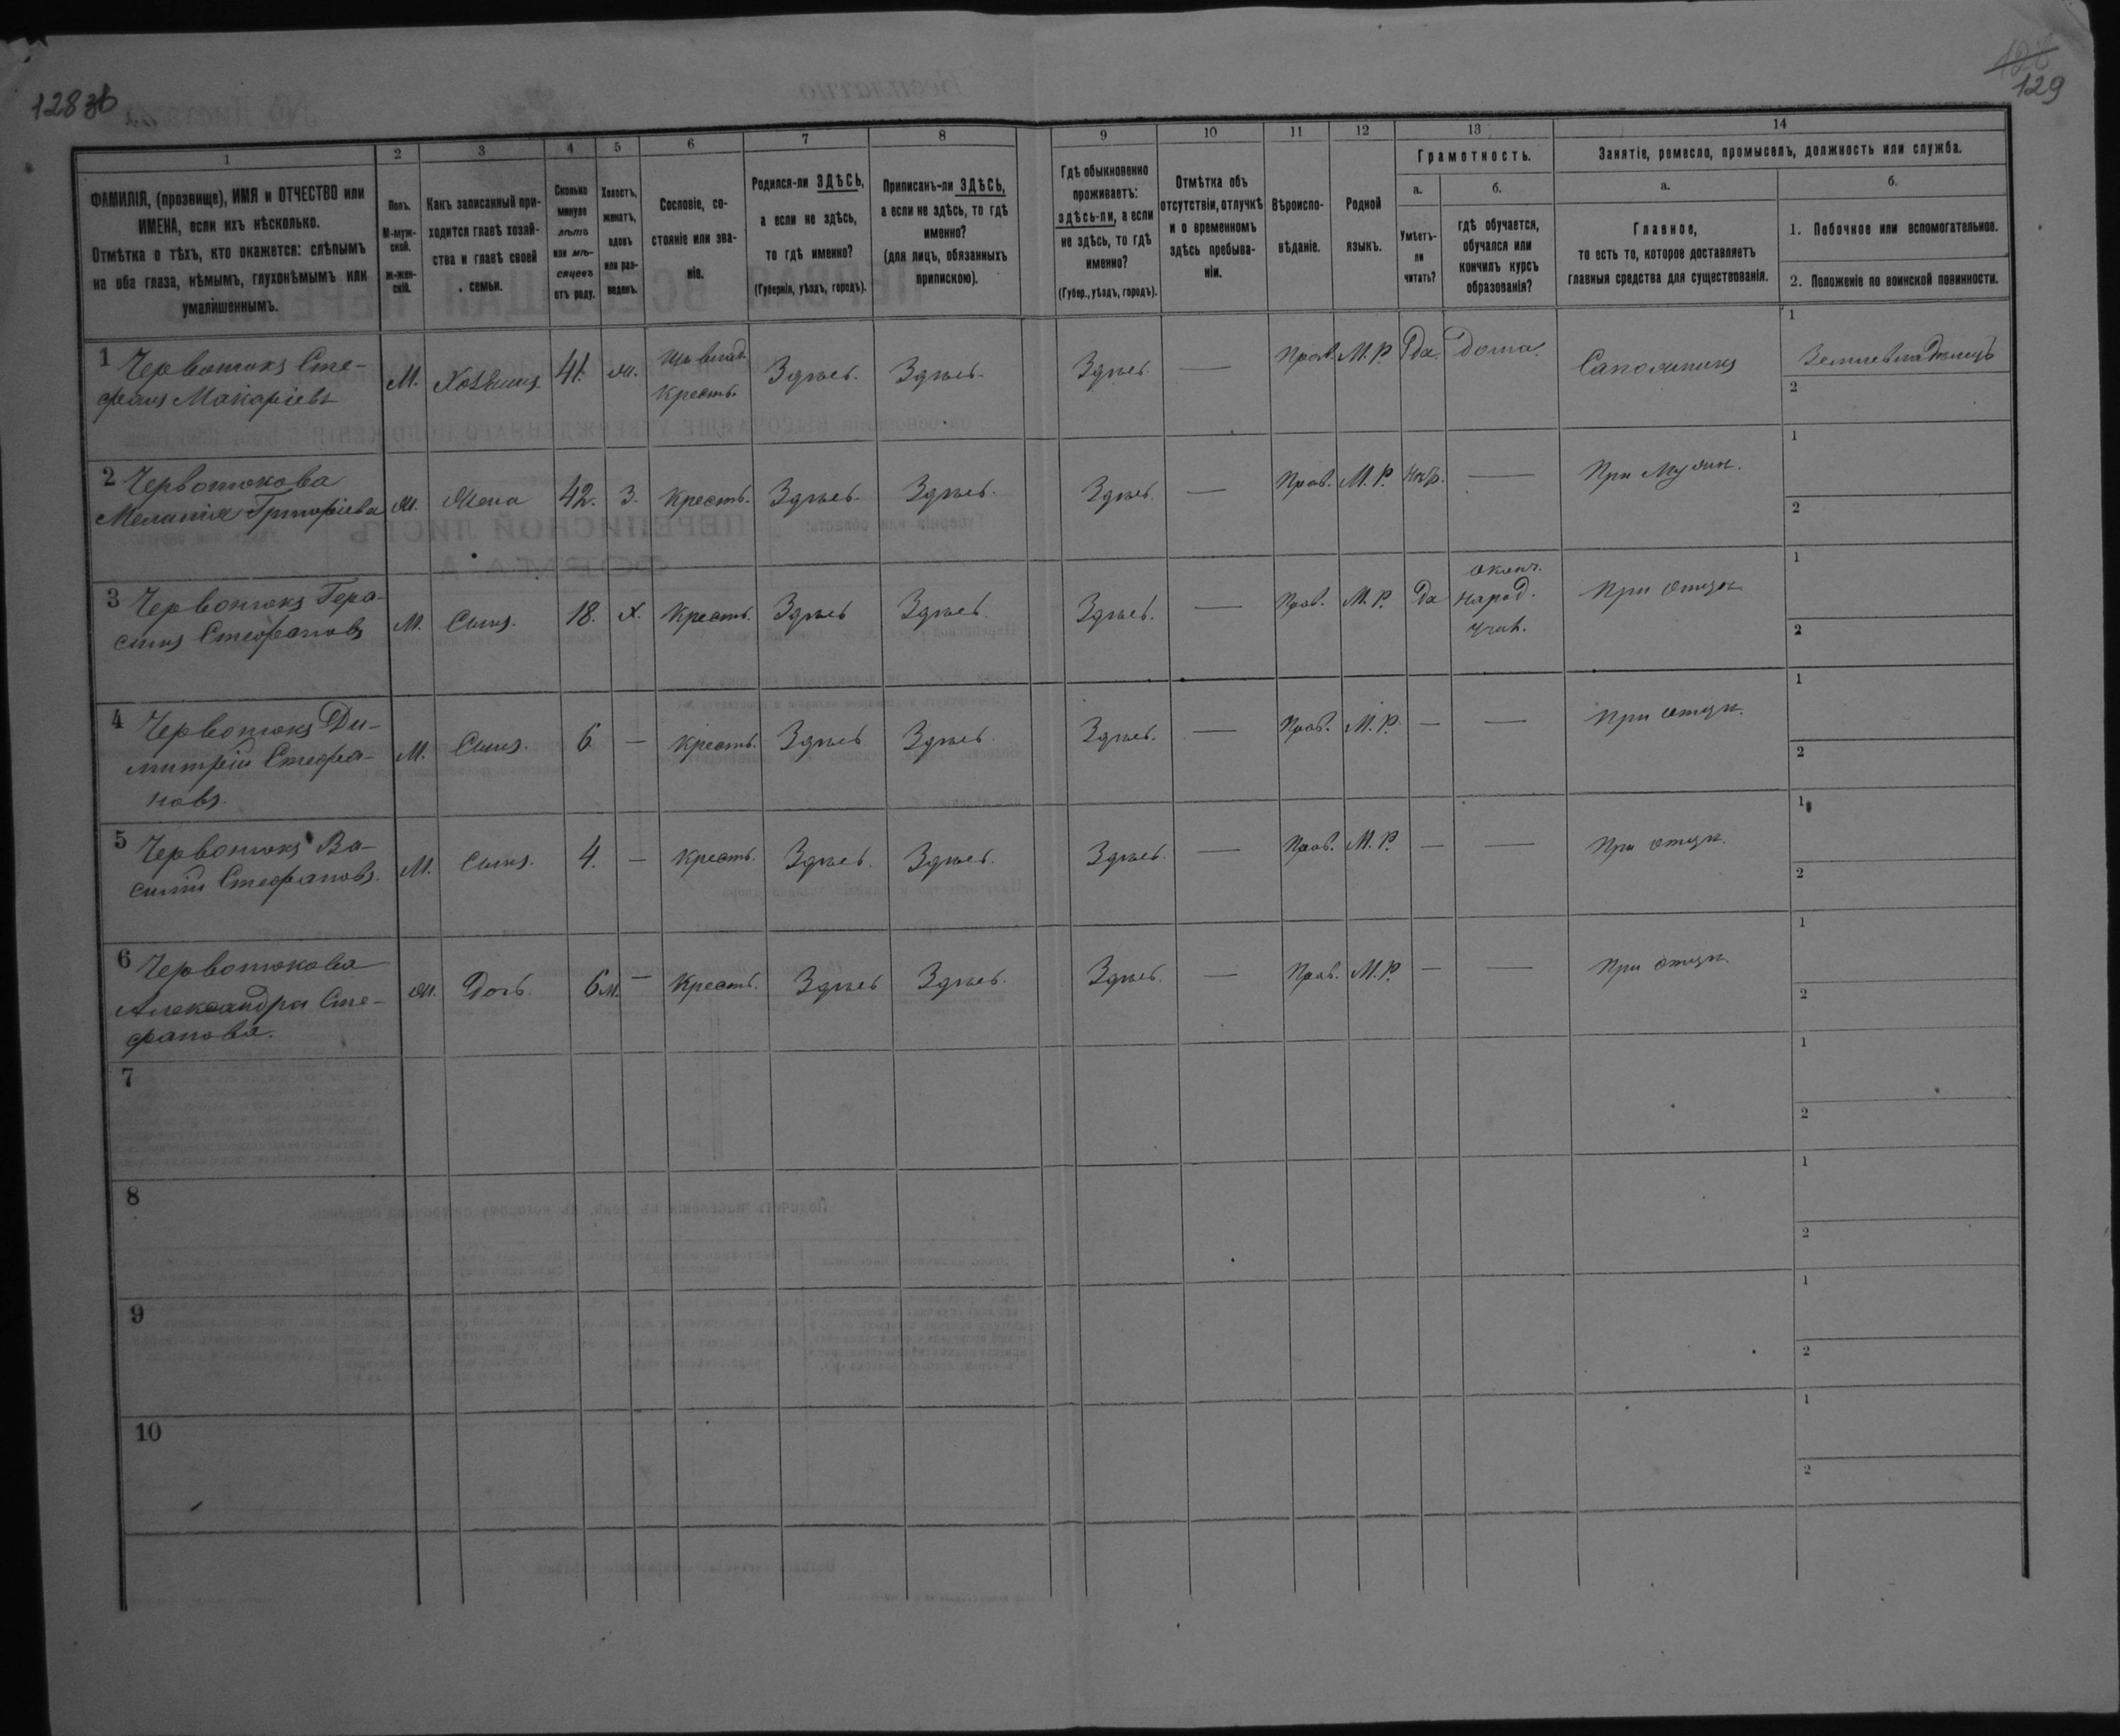 128 зв
128
129
1
2
3
4
5
6
7
8
9
10
11
12
13
14
ФАМИЛІЯ, (прозвище), ИМЯ и ОТЧЕСТВО или
ИМЕНА, если ихъ нѣсколько.
Отмѣтка о тѣхъ, кто окажется: слѣпымъ
на оба глаза, нѣмымъ, глухонѣмымъ или
умалишеннымъ.
Полъ.
М-муж-
ской.
Ж-жен-
скій.
Какъ записанный при-
ходится главѣ хозяй-
ства и главѣ своей
семьи.
Сколько
минуло
лѣтъ
или мѣ-
сяцевъ
отъ роду.
Холостъ,
женатъ,
вдовъ
или раз-
веденъ.
Сословіе, со-
стояніе или зва-
ніе.
Родился-ли ЗДѢСЬ,
а если не здѣсь,
то гдѣ именно?
(Губернія, уѣздъ, городъ).
Приписанъ-ли ЗДѢСЬ,
а если не здѣсь, то гдѣ
именно?
(для лицъ, обязанныхъ
припискою).
Гдѣ обыкновенно
проживаетъ:
здѣсь-ли, а если
не здѣсь, то гдѣ
именно?
(Губер., уѣздъ, городъ).
Отмѣтка объ
отсутствіи, отлучкѣ
и о временномъ
здѣсь пребыва-
ніи.
Вѣроиспо-
вѣданіе.
Родной
языкъ.
Грамотность.
а.
Умѣетъ-
ли
читать?
б.
гдѣ обучается,
обучался или
кончилъ курсъ
образованія?
Занятіе, ремесло, промыселъ, должность или служба.
а.
Главное,
то есть то, которое доставляетъ
главныя средства для существованія.
б.
1. Побочное или вспомогательное.
2. Положеніе по воинской повинности.
1 Червотокъ Сте-
фанъ Макаріевъ
М. Хозяинъ. 41. ж.
Крестъ.
Здѣсь. Здѣсь. Здѣсь. — Прав. М. Р. Да. Дома. Сапожникъ
1
Земпевладѣлецъ
2
2 Червотокова
Меланія Григоріева
ж. Жена 42. З. Крестъ. Здѣсь. Здѣсь. Здѣсь. — Прав. М. Р. Нѣтъ. — При мужѣ.
1
2
3 Червотокъ Гера-
симъ Стефановъ
М. Сынъ. 18. Х. Крестъ. Здѣсь Здѣсь. Здѣсь. — Прав. М. Р. Да
оконч.
народ.
учил.
При отцѣ
1
2
4 Червотокъ Ди-
митрій Стефа-
новъ.
М. Сынъ. 6 — Крестъ. Здѣсь Здѣсь. Здѣсь. — Прав. М. Р. — — При отцѣ.
1
2
5 Червотокъ Ва-
силій Стефановъ.
М. Сынъ. 4. — Крестъ. Здѣсь. Здѣсь. Здѣсь. — Прав. М. Р. — — При отцѣ.
1
2
6 Червотокова
Александра Сте-
фанова.
ж. Дочь. 6 м. — Крестъ. Здѣсь Здѣсь. Здѣсь. — Прав. М. Р. — — При отцѣ.
1
2
7
1
2
8
1
2
9
1
2
10
1
2